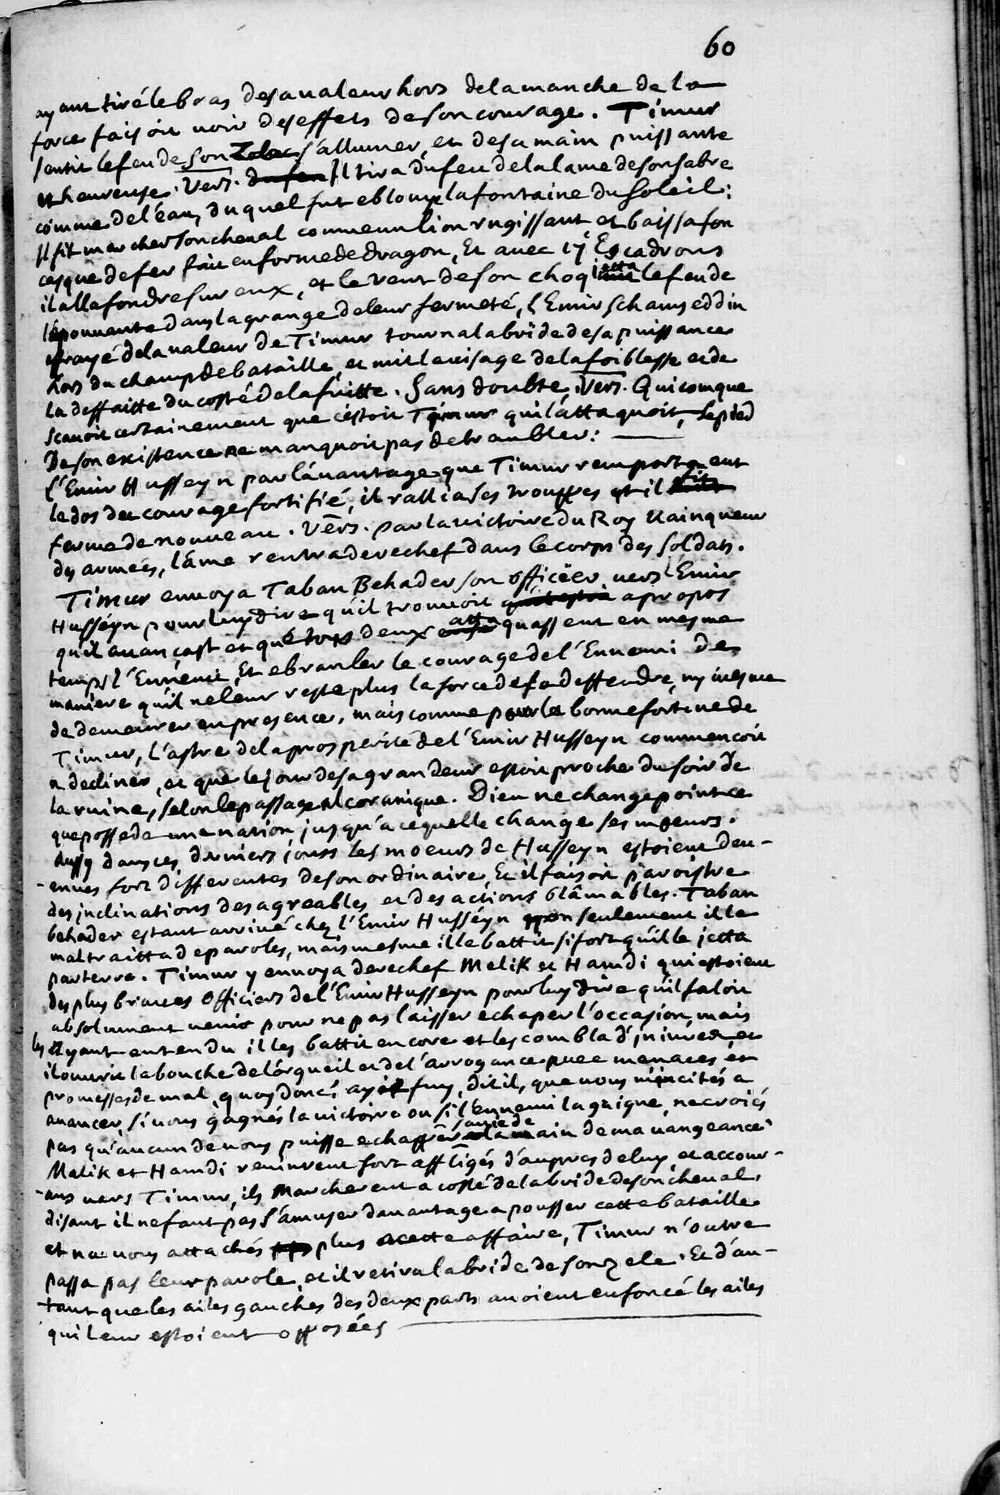 60
ayant tiré le bras de sa valeur hors de la manche de la
force faisoit voir des effets de son courage. Timur
sentit le feu de son Zele s'allumer, et de sa main puissante
et heureuse. Vers. Il tira du feu de la lame de son sabre
comme de l'eau, duquel fut eblouye la fontaine du Soleil:
Il fit marcher son cheval comme un lion rugissant, et baissa son
casque de fer fait en forme de dragon, Et avec 17 Escadrons
il alla fondre sur eux, et le vent de son choq jetta le feu de
l'épouvante dans la grange de leur fermeté, l'Emir Schamseddin
effrayé de la valeur de Timur tourna la bride de sa puissance
hors du champ de bataille, et mit le visage de la foiblesse et de
la deffaitte du costé de la fuitte. Sans doubte, Vers. Quiconque
scavoit certainement que c'estoit Timur qui l'attaquoit, Le pied
De son existence ne manquoit pas de branbler:
l'Emir Husseyn par l'avantage que Timur remporta eut
le dos du courage fortifié, il rallia ses trouppes et il fit
ferme de nouveau. Vers. par la victoire du Roy Vainqueur
des armées, l'âme rentra derechef dans le corps des soldats.
Timur envoya Taban Behader son officier vers l'Emir
Husséyn pour luy dire qu'il trouvoit apropos
qu'il avançast et que tous deux attaquassent en mesme
temps l'Ennemi, Et ebranler le courage de l'Ennemi de
maniere qu'il ne leur reste plus la force de se deffendre, ny mesme
de demeurer en presence, mais comme pour la bonne fortune de
Timur, l'astre de la prosperité de l'Emir Husseyn commençoit
a decliner, et que le jour de sa grandeur estoit proche du soir de
la ruine, selon le passage Alcoranique. Dieu ne change point ce
que possede une nation jusqu'a ce quelle change ses moeurs.
Aussy dans ces derniers jours les moeurs de Husseyn estoient dev-
-enues fort differentes de son ordinaire, Et il faisoit paroistre
des inclinations desagreables et des actions blâmables. Taban
behader estant arrivé chez l'Emir Husséyn non seulement il le
maltraitta de paroles, mais mesme il le battit si fort qu'il le jetta
par terre. Timur y envoya derechef Melik et Hamdi qui estoient
des plus braves Officiers de l'Emir Husseyn pour luy dire qu'il faloit
absolument venir pour ne pas laisser echaper l'occasion, mais
les ayant entendu il les battit encore et les combla d'injures, et
il ouvrit la bouche de l'orgueil et de l'arrogance avec menaces et
promesses de mal, quoy donc, ay je fuy, dit il, que vous m'incités a
avancer, si vous gagnés la victoire ou si l'Ennemi la gaigne, ne croiés
pas qu'aucun de vous puisse echapper sa vie de la main de ma vangeance
Melik et Hamdi revinrent fort affligés d'aupres de luy, et accour-
-ans vers Timur, ils marcherent a costé de la bride de son cheval,
disant il ne faut pas s'amuser davantage a pousser cette bataille
et ne vous attachés plus a cette affaire, Timur n'outre
passa pas leur parole, et il retira la bride de son zele. Et d'au-
-tant que les ailes gauches des deux partis avoient enfoncé les ailes
qui leur estoient opposées